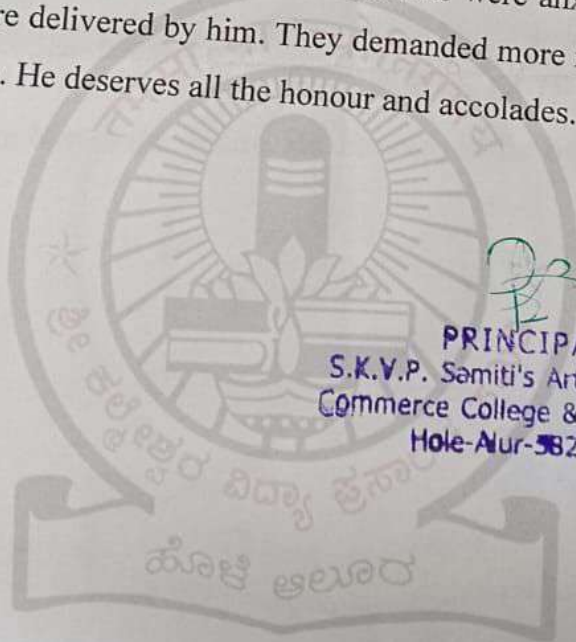 re delivered by him. They demanded more
. He deserves all the honour and accolades.
तमसो
PRINCIPA
S.K.V.P. Samiti's Ar
Commerce College &
Hole-Alur-582
ಶ್ರೀ ಕಲ್ಮೇಶ್ವರ ವಿದ್ಯಾ ಪ್ರಸಾರ
ಹೊಳೆ ಆಲೂರ